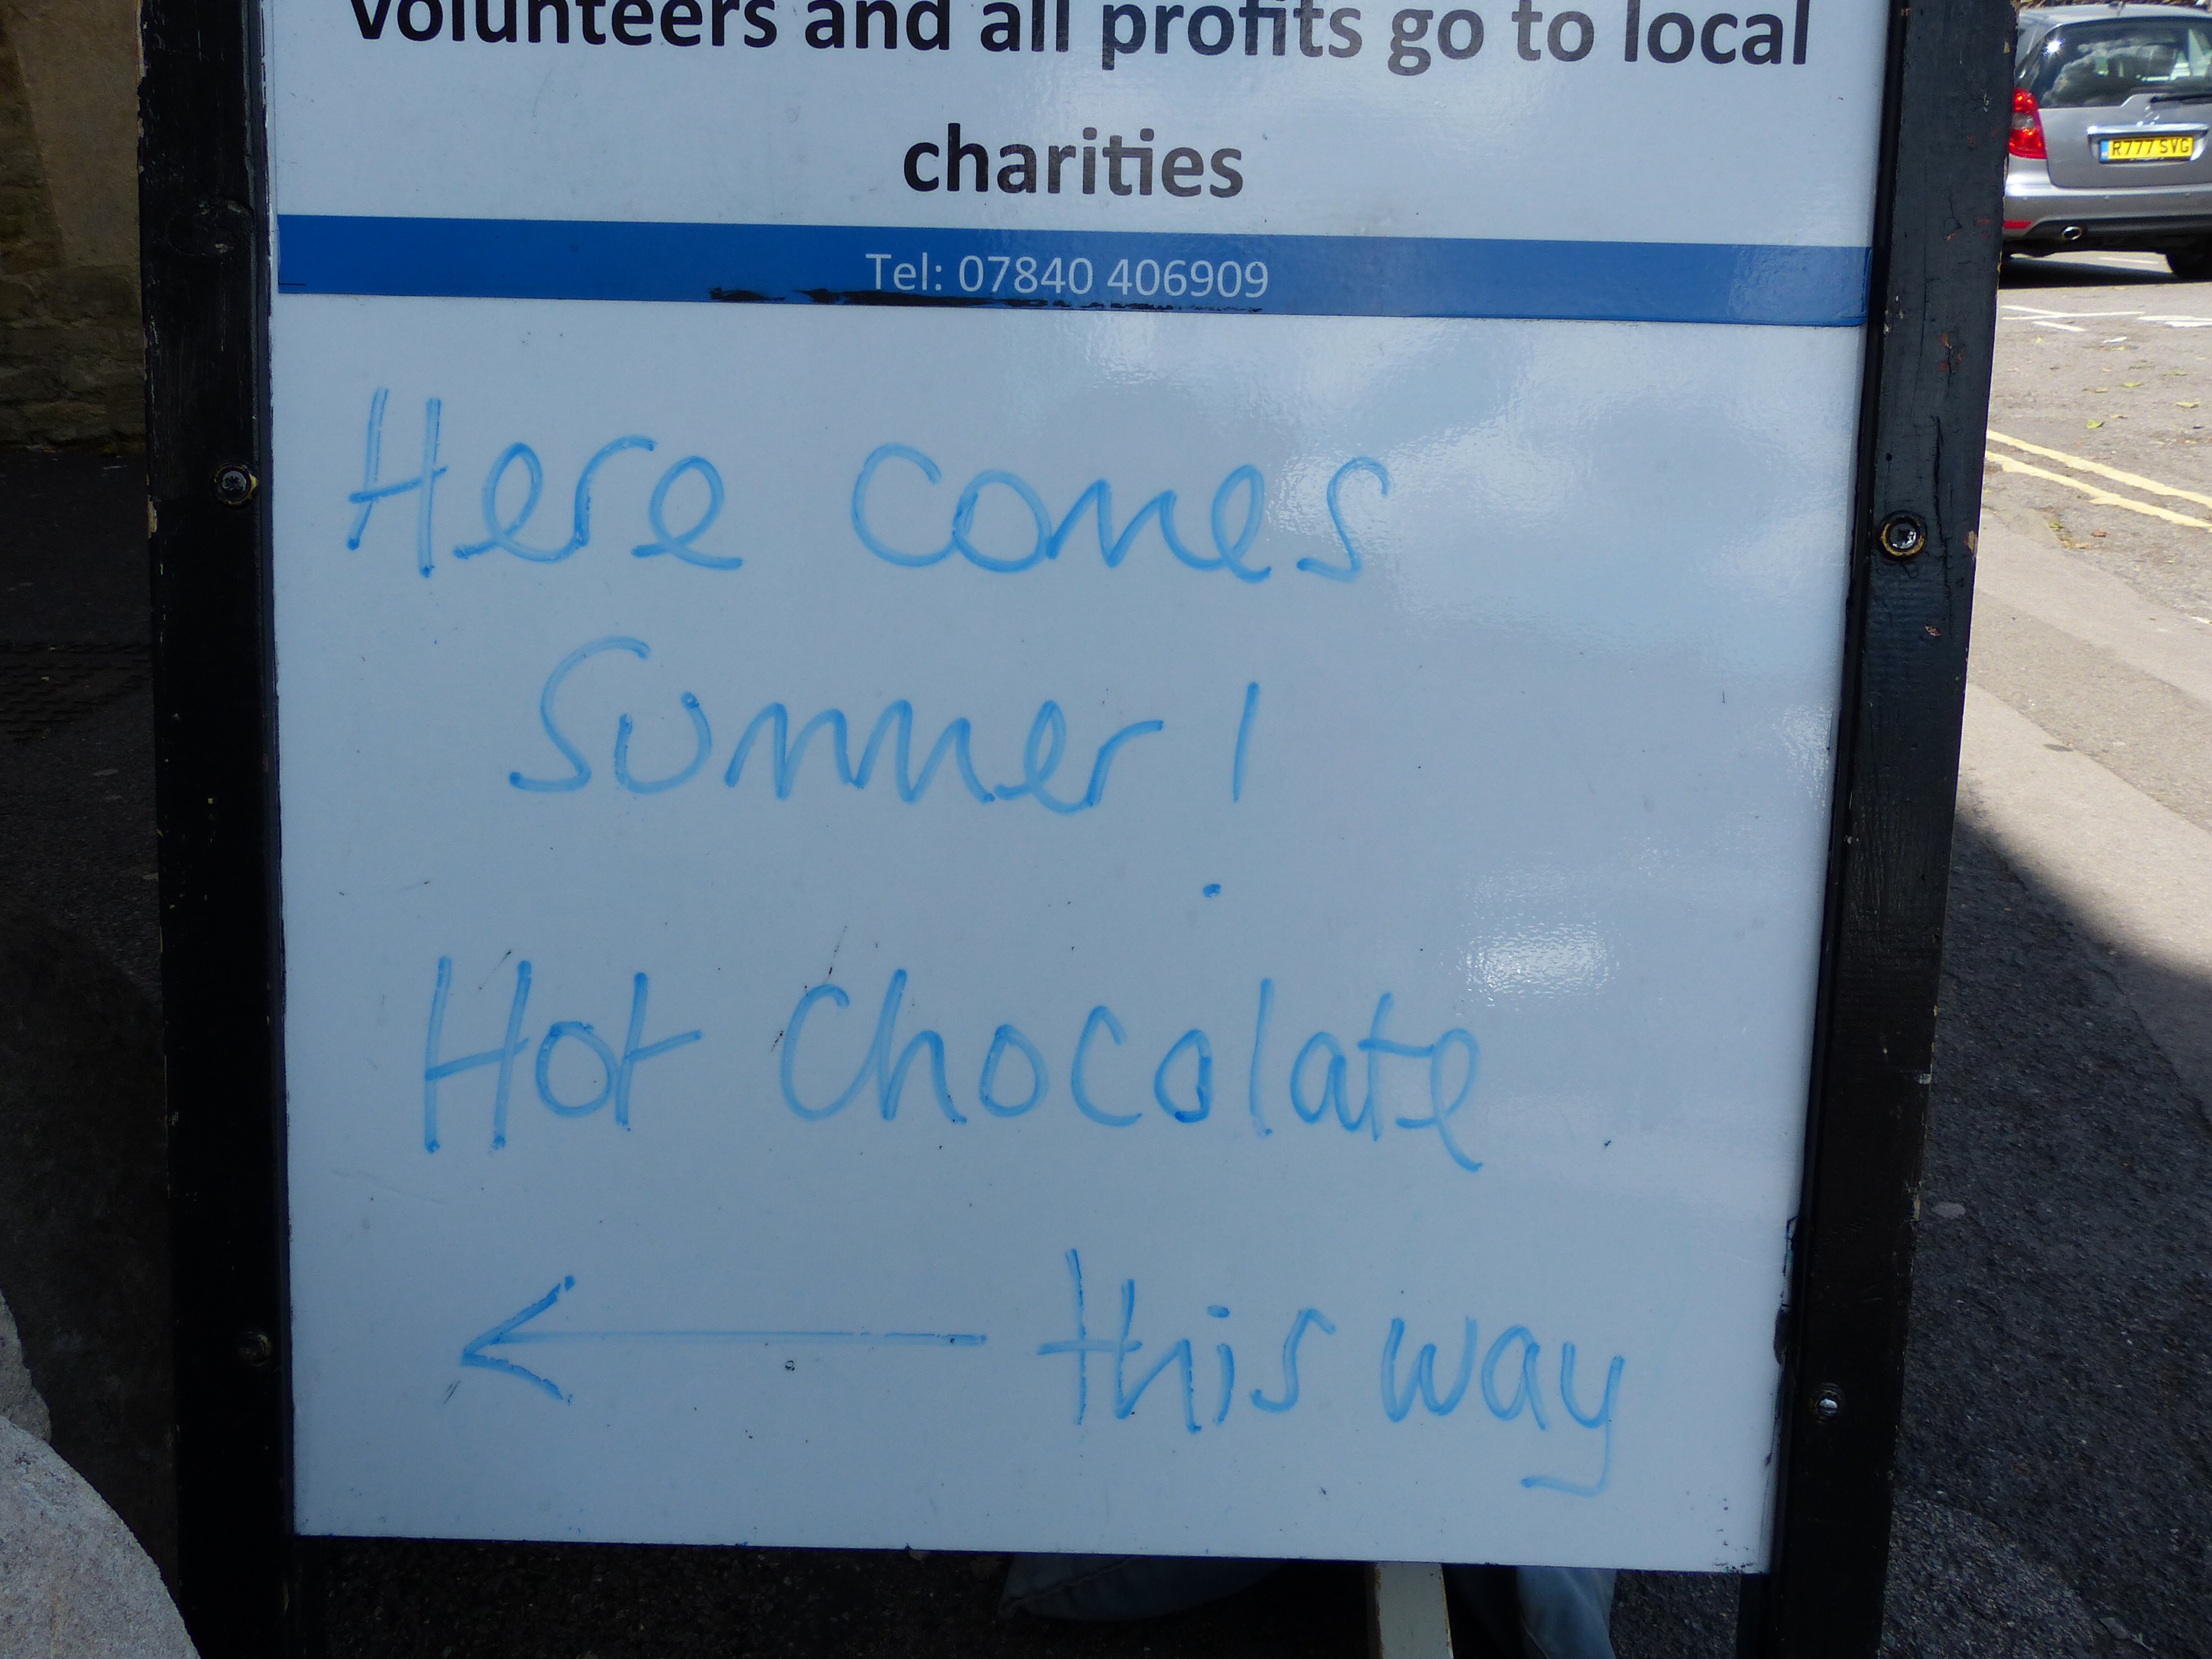 volunteers and all profits go to local
charities
Tel: 07840 406909
Here comes
Summer!
Hot Chocolate
← this way
R777 SVG